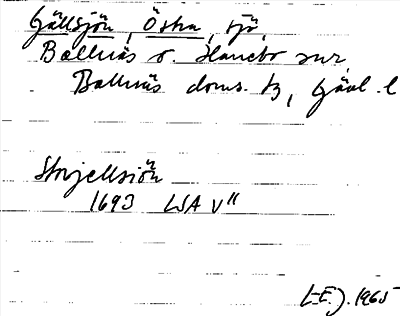 Gällsjön, Östra, sjö,
Bollnäs o. Hanebo snr,
Bollnäs doms. tg, Gävl. l
Storjellsiön
1693 LSA V"
L-E.J. 1965